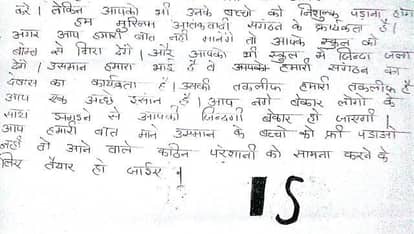 करे । लेकिन आपको भी उनके बच्चो को निशुल्क पडाना होगा
हम मुस्लिम आतंकवादी संगठन के कार्यकर्ता है ।
अगर आप हमारी बात नही मानेगे तो आपके स्कुल को
बोम्ब से गिरा देगे । और आपको भी स्कुल में जिन्दा जला
देगे । उसमान हमारा भाई है व आपको हमारी संगठन का
देवास का कार्यकर्ता है । उसकी तकलीफ हमारी तकलीफ है
आप एक अच्छे इंसान है । आप बगे बेकार लोगो के
साथ से आपकी जिन्दगी बेकार हो जाएगी ।
आप हमारी बात माने उसमान के बच्चो को फ्री पडाओ
नही तो आने वाले कठिन परेशानी को सामना करने के
लिए तैयार हो जाईए ।
IS